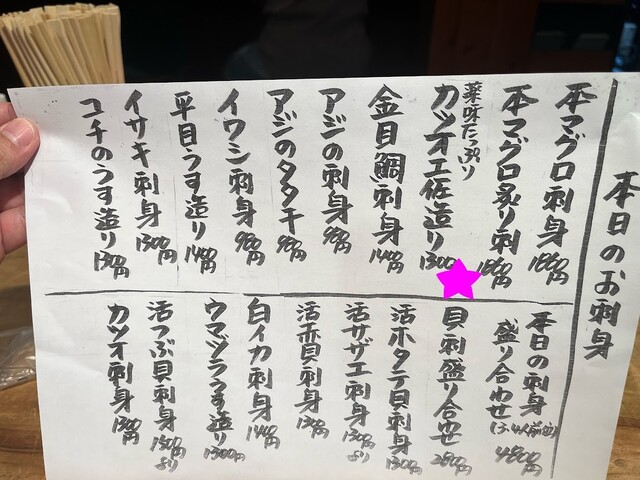 本日のお刺身
本マグロ刺身 1860円
本マグロ炙り刺 1860円
薬味たっぷり
カツオ土佐造り 1300円
金目鯛刺身 1480円
アジの刺身 980円
アジのタタキ 980円
イワシ刺身 980円
平目うす造り 1480円
イサキ刺身 1300円
コチのうす造り 1300円
本日の刺身
盛り合わせ 4800円
貝刺盛り合せ 2800円
活ホタテ貝刺身 1300円
活サザエ刺身 1300円より
活赤貝刺身
白イカ刺身 1480円
ウマヅラうす造り 1300円
活つぶ貝刺身 1500円より
カツオ刺身 1300円